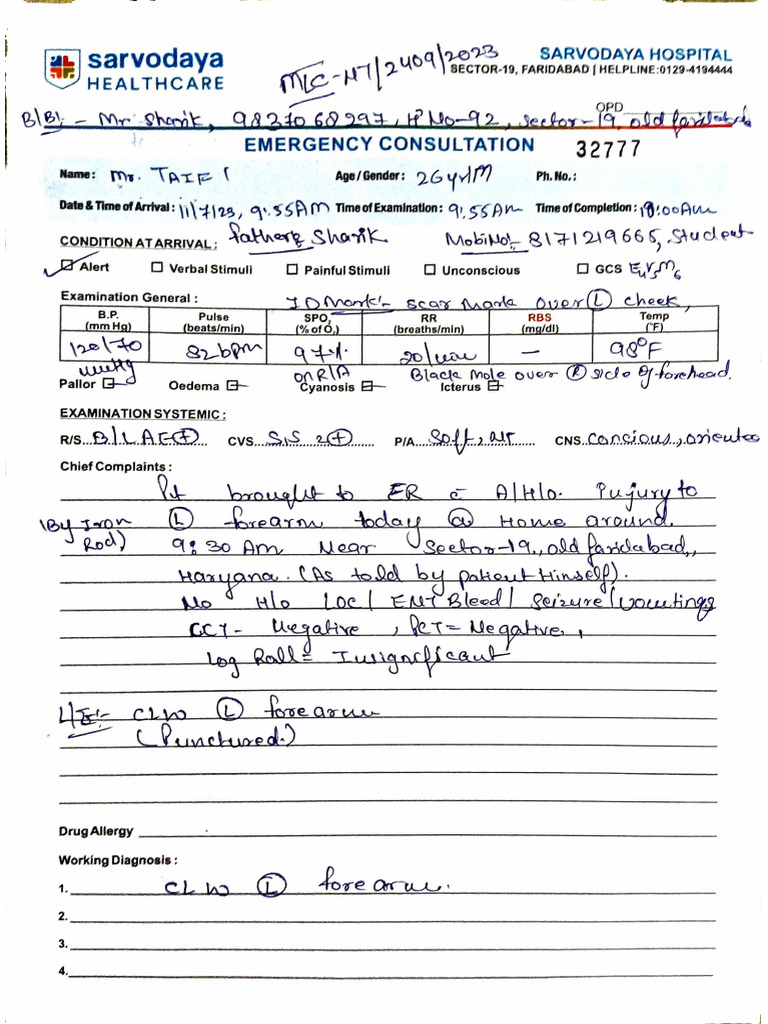 sarvodaya
HEALTHCARE
MLC-N7/2409/2023
SARVODAYA HOSPITAL
SECTOR-19, FARIDABAD | HELPLINE:0129-4194444
OPD
B/By:- Mr Sharik, 9837068297, H No-92, Sector-19, old faridabad
EMERGENCY CONSULTATION 32777
Name : Mr. TAIF Age / Gender : 26yr/M Ph. No. :
Date & Time of Arrival : 11/7/23, 9:55AM Time of Examination : 9:55Am Time of Completion : 10:00AM
CONDITION AT ARRIVAL : father Sharik Mobi No:- 8171219665, Student
Alert Verbal Stimuli Painful Stimuli Unconscious GCS E4V5M6
Examination General : ID Mark:- scar mark over (L) cheek,
B.P. (mm Hg) Pulse (beats/min) SPO2 (% of O2) RR (breaths/min) RBS (mg/dl) Temp (°F)
120/70 mmHg 82 bpm 97% on R/A 20/min - 98°F
Black mole over (R) side of forehead.
Pallor Oedema Cyanosis Icterus
EXAMINATION SYSTEMIC :
R/S...B/L AE(+) CVS...S1S2(+) P/A...Soft, CNS...Conscious, oriented
Chief Complaints :
Pt brought to ER c̄ A/H/o. Injury to
(By Iron Rod) (L) forearm today @ Home around
9:30 Am Near Sector-19, old faridabad,
Haryana. (As told by patient Himself).
No H/o LOC/ ENT Bleed/ Seizure/Vomitings
CCT- Negative, PCT= Negative,
Log Roll= Insignificant
L/E:- CLW (L) forearm
(Punctured.)
Drug Allergy
Working Diagnosis :
1. CLW (L) forearm.
2.
3.
4.